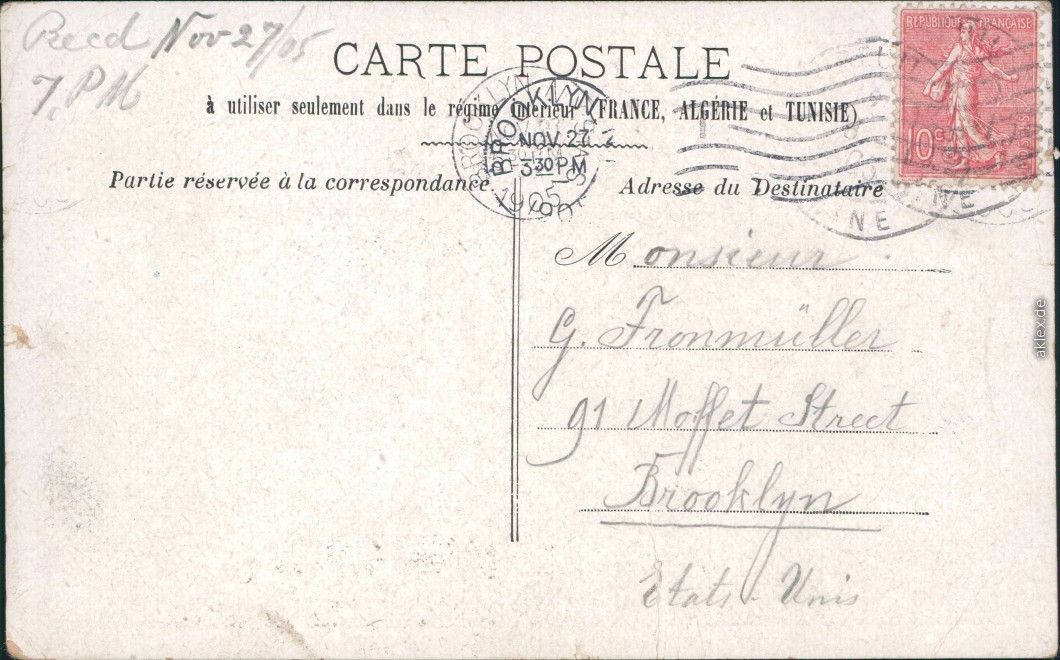 Recd Nov 27/05
7, PM
CARTE POSTALE
à utiliser seulement dans le régime intérieur (FRANCE, ALGÉRIE et TUNISIE)
Partie réservée à la correspondance
Adresse du Destinataire
REPUBLIQUE FRANÇAISE
10c
BROOKLYN
NOV 27
3 30 PM
1905
NE
NE
Monsieur
G. Fronmüller
91 Moffet Street
Brooklyn
Etats-Unis
aklex.de